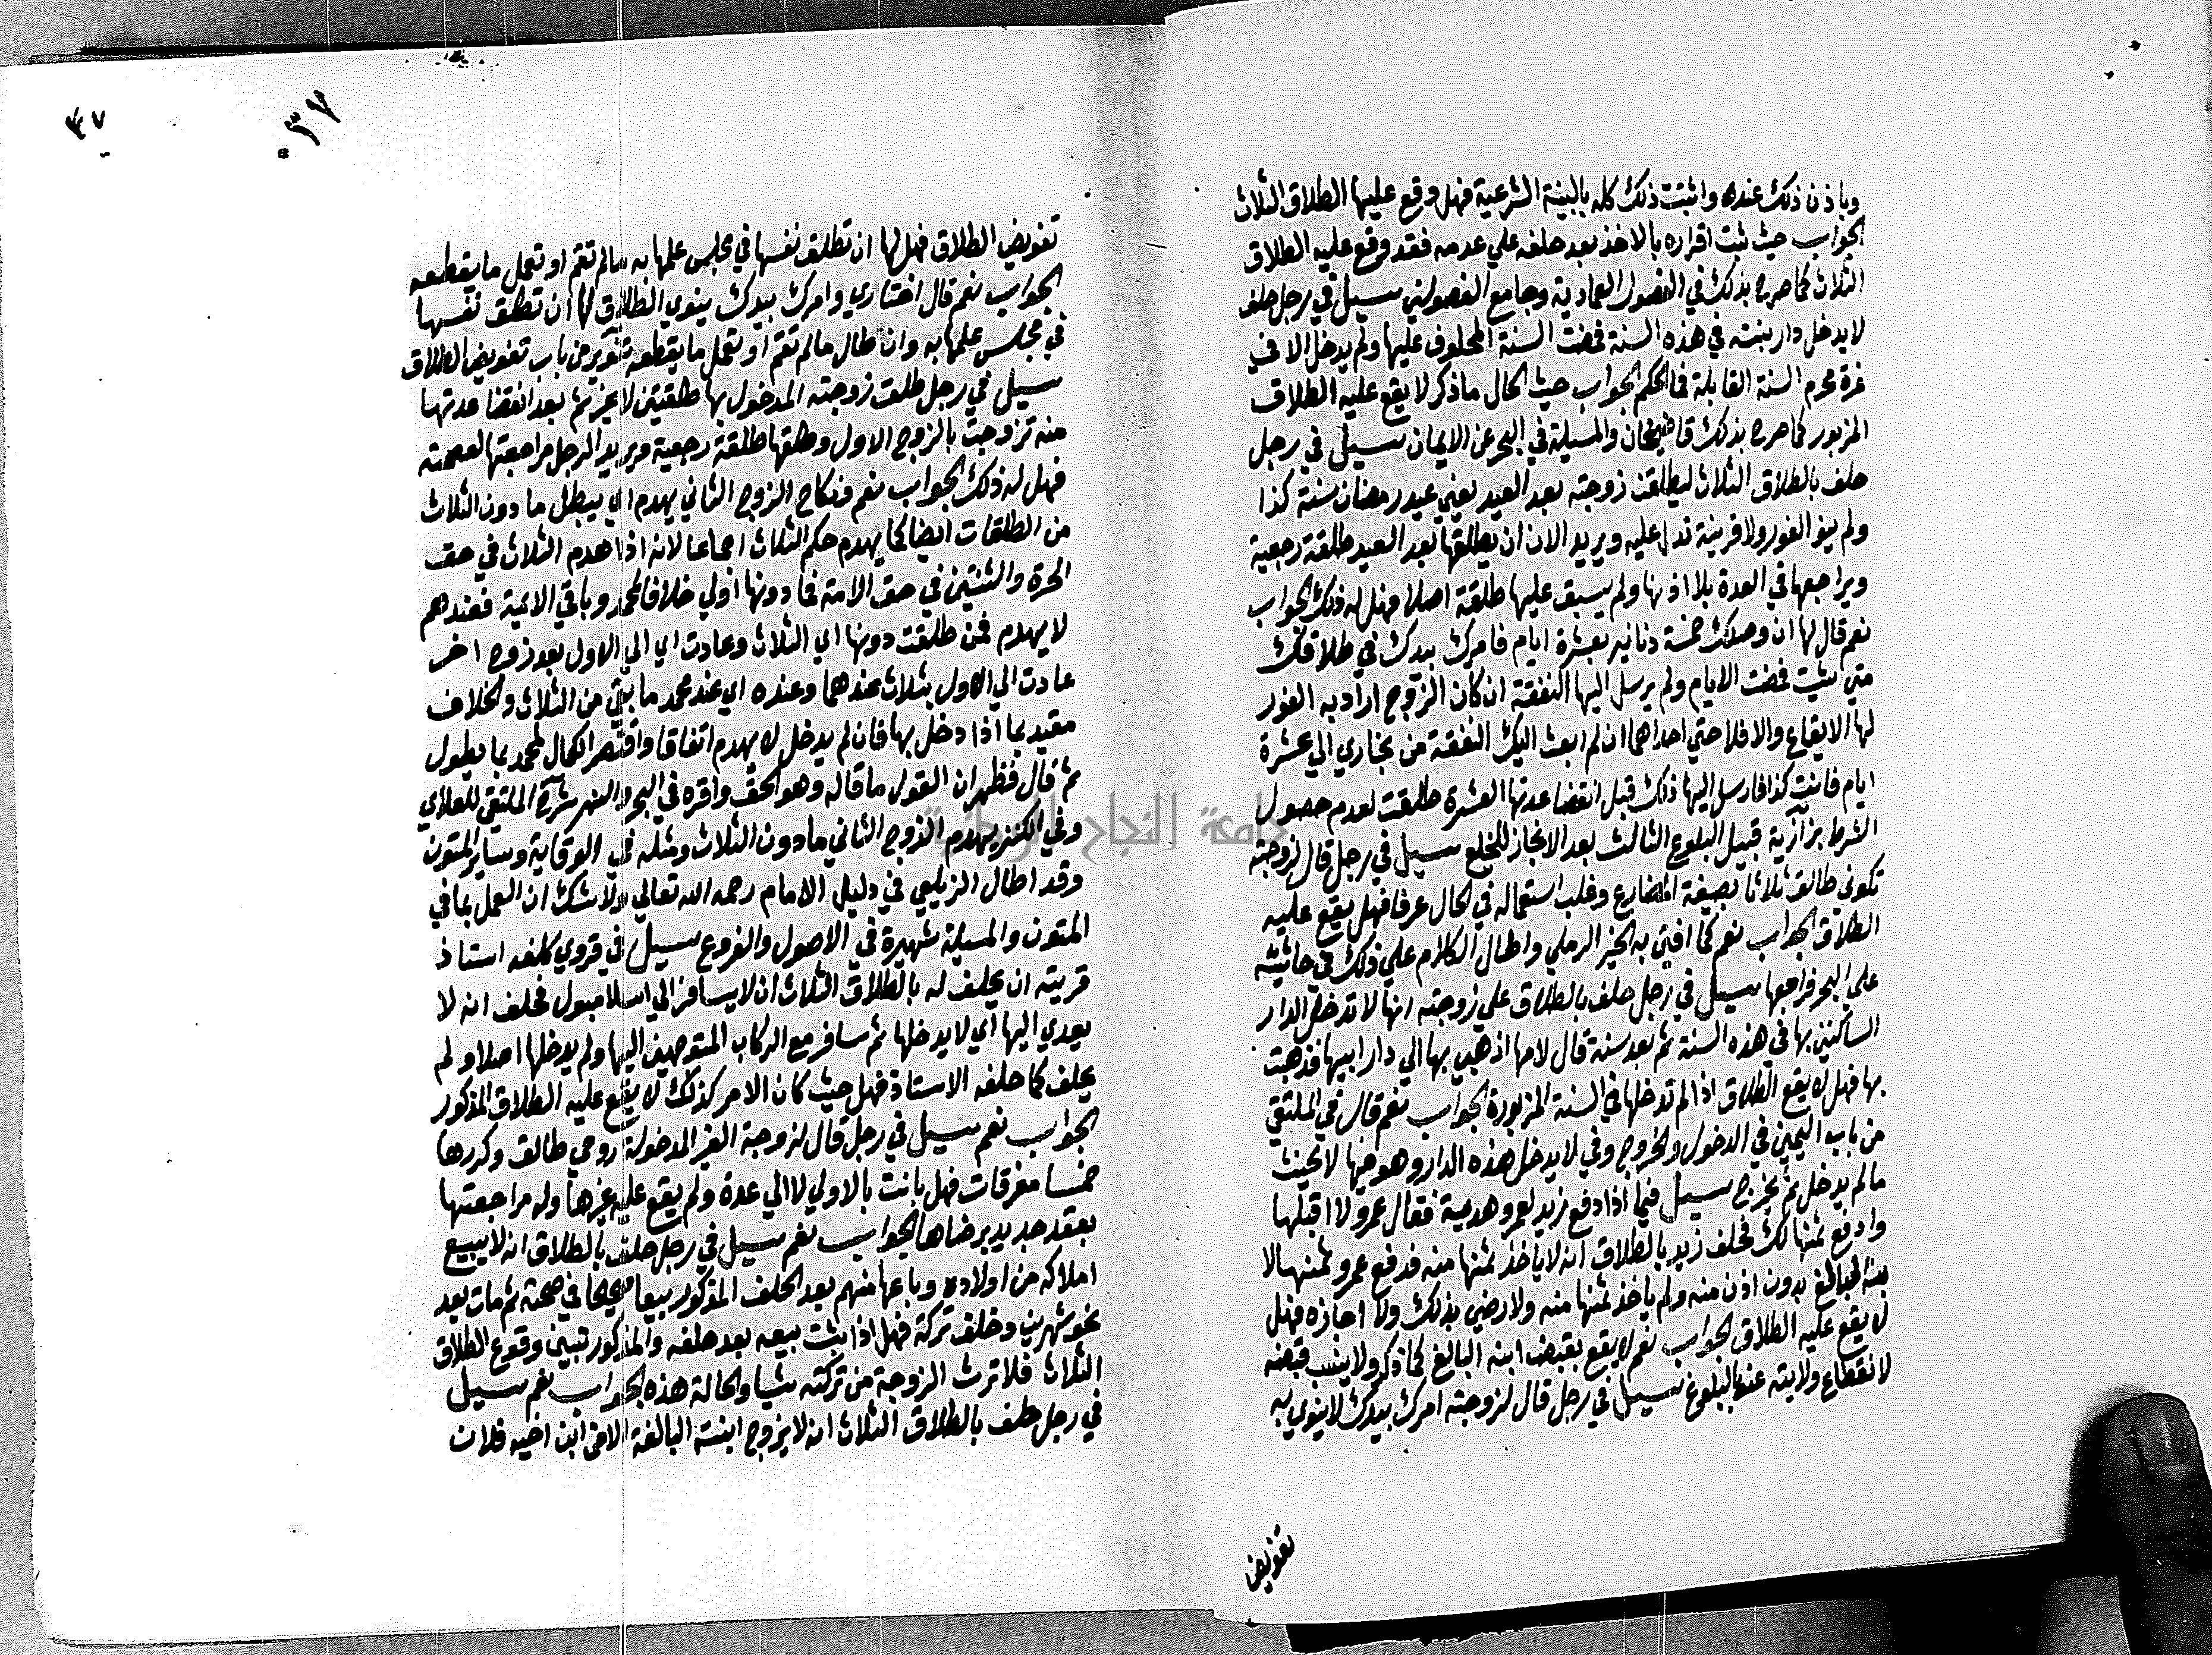 وباذن ذلك عنده واثبت ذلك كله بالبينة الشرعية فهل وقع عليها الطلاق الثلاث
الجواب حيث ثبت اقراره بالاخذ بعد حلفه علي عدمه فقد وقع عليه الطلاق
الثلاث كما صرح بذلك في الفصول العمادية وجامع الفصولين سيل في رجل حلف
لا يدخل دار بنته في هذه السنة فمضت السنة المحلوف عليها ولم يدخل الا في
غرة محرم السنة القابلة فما الحكم الجواب حيث الحال ما ذكر لا يقع عليه الطلاق
المزبور كما صرح بذلك قاضيخان والمسيلة في البحر عن الايمان سيل في رجل
حلف بالطلاق الثلاث ليطلقن زوجته بعد العيد يعني عيد رمضان سنة كذا
ولم ينو الفور ولا قرينة تدل عليه ويريد الان ان يطلقها بعد العيد طلقة رجعية
ويراجعها في العدة بلا اذنها ولم يسبق عليها طلقة اصلا فهل له ذلك الجواب
نعم قال لها ان وصلك خمسة دنانير بعشرة ايام فامرك بيدك في طلاقك
متي شيت فمضت الايام ولم يرسل اليها النفقة ان كان الزوج اراد به الفور
لها الايقاع والا فلا حتي احداهما ان لم ابعث اليك النفقة من بخاري الي عشرة
ايام فانت كذا فارسل اليها ذلك قبل انقضا عدتها العشرة طلقت لعدم حصول
الشرط بزازية قبيل البلوغ الثالث بعد الانجاز للخلع سيل في رجل قال لزوجته
تكوني طالق ثلاثا بصيغة المضارع وغلب استعماله في الحال عرفا فهل يقع عليه
الطلاق الجواب نعم كما افتي به الخير الرملي واطال الكلام علي ذلك في حاشيته
علي البحر فراجعها سيل في رجل حلف بالطلاق علي زوجته انها لا تدخل الدار
الساكنين بها في هذه السنة ثم بعد سنة قال لامها اذهبي بها الي دار ابيها فذهبت
بها فهل لا يقع الطلاق اذا لم تدخلها في السنة المزبورة الجواب نعم قال في الملتقي
من باب اليمين في الدخول والخروج وفي لا يدخل هذه الدار وهو فيها لا يحنث
مالم يدخل ثم يخرج سيل فيما اذا دفع زيد لعمرو هدية فقال عمرو لا اقبلها
وادفع ثمنها لك فحلف زيد بالطلاق انه لا ياخذ ثمنها منه فدفع عمرو ثمنها لا
بنه البالغ بدون اذن منه ولم ياخذ ثمنها منه ولا رضي بذلك ولا اجازه فهل
لا يقع عليه الطلاق الجواب نعم لا يقع بقبض ابنه البالغ كما ذكر ولا ينسب قبضه
لانقطاع ولايته عنه بالبلوغ سيل في رجل قال لزوجته امرك بيدك لا ينوي به
تفويض
٣٧
٣٧
تفويض الطلاق فهل لها ان تطلق نفسها في مجلس علمها به مالم تقم او تعمل ما يقطعه
الجواب نعم قال اختاري وامرك بيدك ينوي الطلاق لها ان تطلق نفسها
في مجلس علمها به وان طال مالم تقم او تعمل ما يقطعه تنوير من باب تفويض الطلاق
سيل في رجل طلق زوجته المدخول بها طلقتين لا غير ثم بعد انقضا عدتها
منه تزوجت بالزوج الاول وطلقها طلقة رجعية ويريد الرجل مراجعتها لعصمته
فهل له ذلك الجواب نعم ونكاح الزوج الثاني يهدم اي يبطل ما دون الثلاث
من الطلقات ايضا كما يهدم حكم الثلاث اجماعا لانه اذا هدم الثلاث في حق
الحرة والثنتين في حق الامة فما دونها اولي خلافا لمحمد وباقي الايمة فعندهم
لا يهدم فمن طلقت دونها اي الثلاث وعادت اي الي الاول بعد زوج اخر
عادت الي الاول بثلاث عندهما وعنده اي عند محمد ما بقي من الثلاث والخلاف
مقيد بما اذا دخل بها فان لم يدخل لا يهدم اتفاقا واقتصر الكمال لمحمد بما يطول
ثم قال فظهر ان القول ما قاله وهو الحق واقره في البحر والنهر شرح الملتقي للعلاي
وفي الكنز يهدم الزوج الثاني ما دون الثلاث ومثله في الوقاية وساير المتون
وقد اطال الزيلعي في دليل الامام رحمه الله تعالي ولا شك ان العمل بما في
المتون والمسيلة شهيرة في الاصول والفروع سيل في قروي كلفه استاذ
قريته ان يحلف له بالطلاق الثلاث ان لا يسافر الي اسلامبول فحلف انه لا
يعدي اليها اي لا يدخلها ثم سافر مع الركاب المتوجهين اليها ولم يدخلها اصلا ولم
يحلف كما حلفه الاستاذ فهل حيث كان الامر كذلك لا يقع عليه الطلاق المذكور
الجواب نعم سيل في رجل قال لزوجة الغير المدخولة روحي طالق وكررها
خمسا مفرقات فهل بانت بالاولي لا الي عدة ولم يقع عليه غيرها وله مراجعتها
بعقد جديد برضاها الجواب نعم سيل في رجل حلف بالطلاق انه لا يبيع
املاكه من اولاده وباعها منهم بعد الحلف المذكور بيعا صحيحا في صحته ثم مات بعد
نحو شهرين وخلف تركة فهل اذا ثبت بيعه بعد حلفه والمذكور تبين وقوع الطلاق
الثلاث فلا ترث الزوجة من تركته شيا والحالة هذه الجواب نعم سيل
في رجل حلف بالطلاق الثلاث انه لا يزوج ابنته البالغة الا من ابن اخيه فلان
جامعة النجاح الوطنية